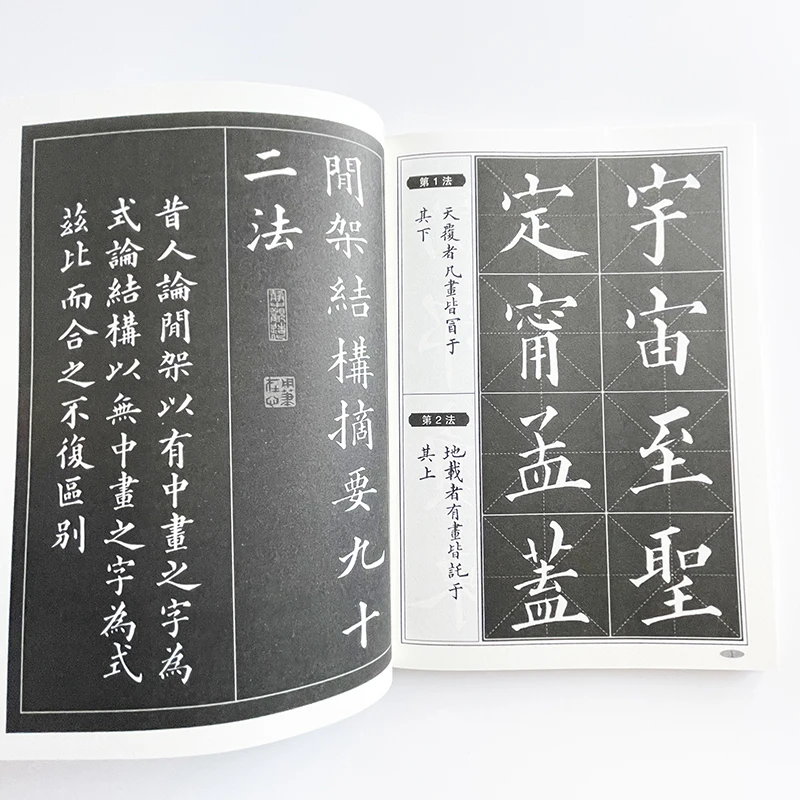 閒架結構摘要九十
二法
昔人論閒架以有中畫之字為
式論結構以無中畫之字為式
茲比而合之不復區別
宇宙至聖
定甯孟蓋
第1法
天覆者凡畫皆冒于
其下
第2法
地載者有畫皆託于
其上
1